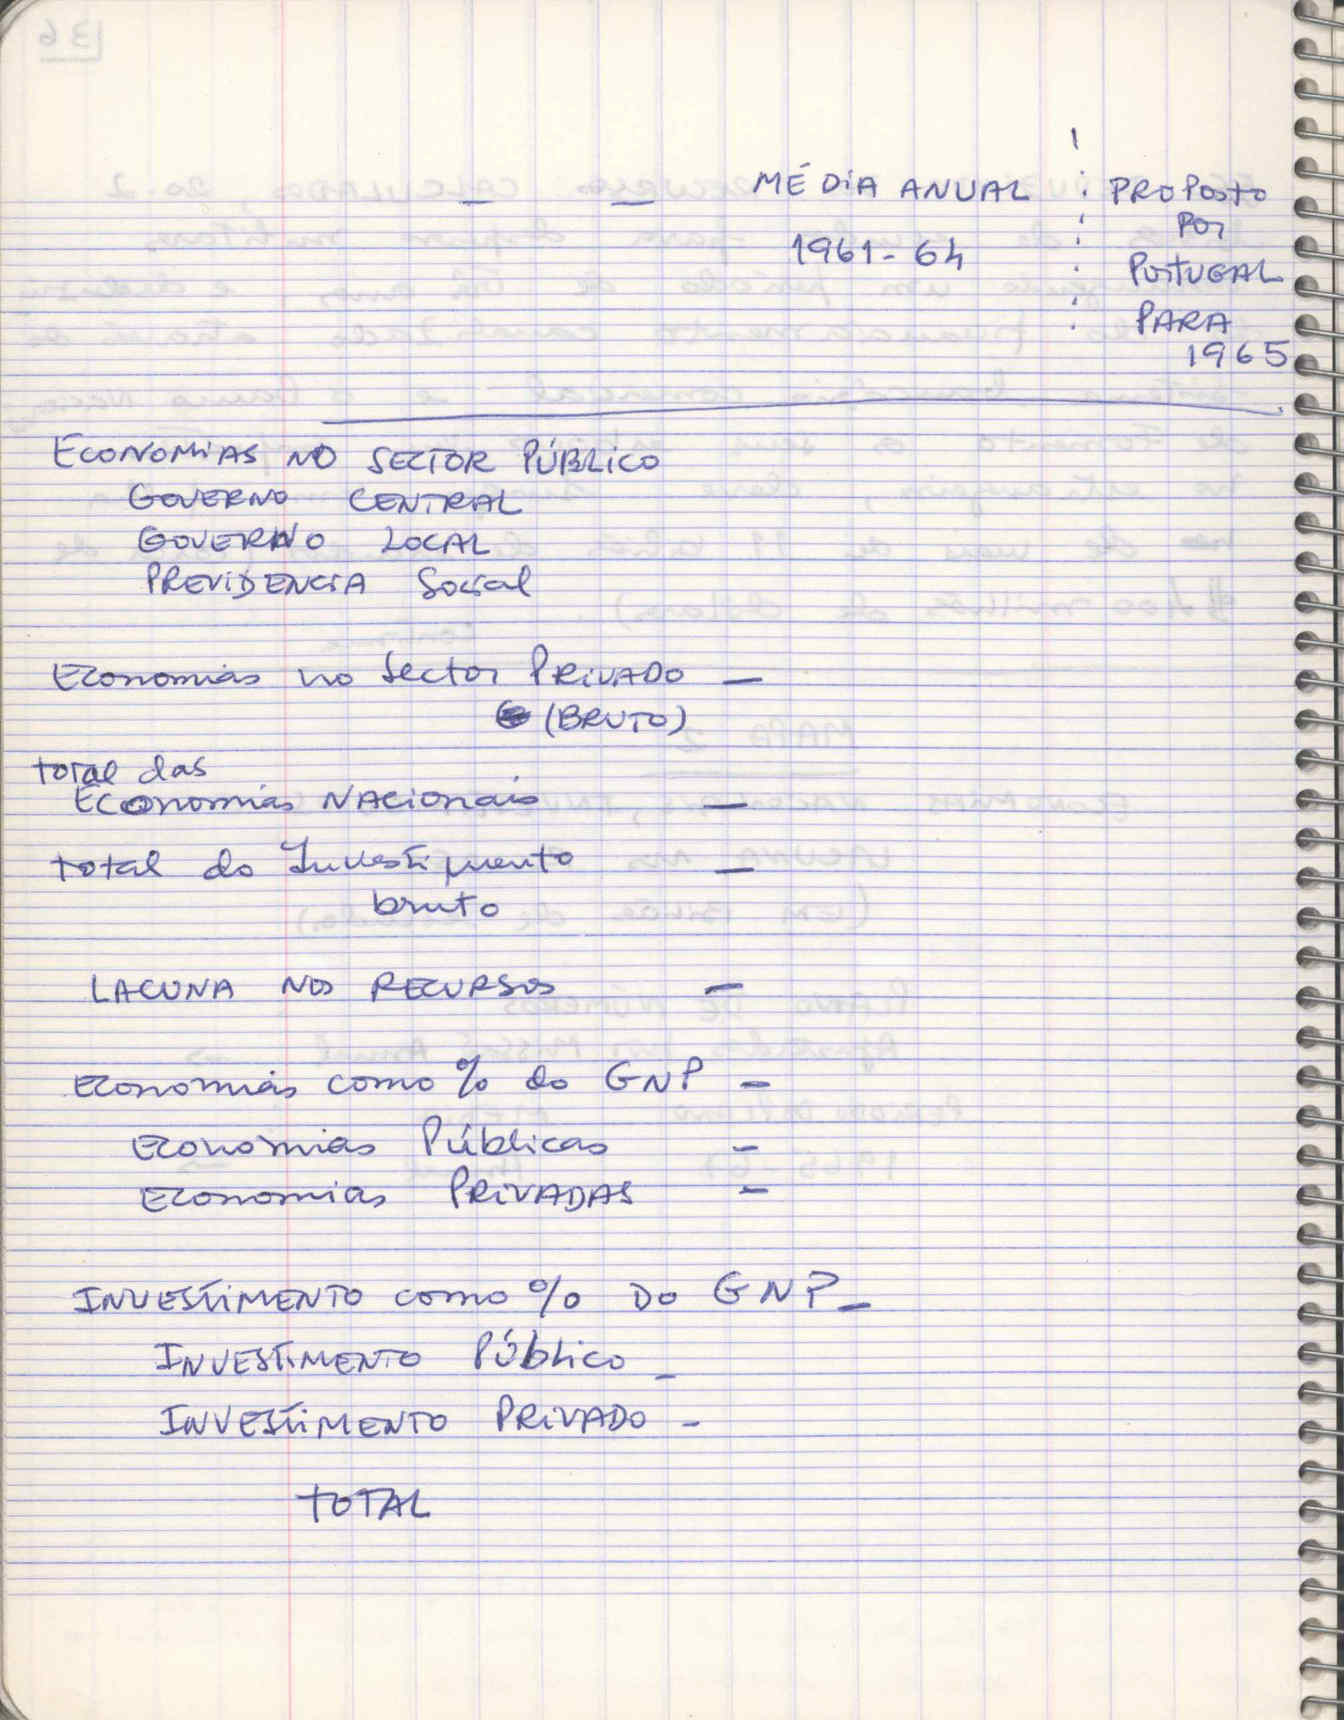 — — MÉDIA ANUAL
1961-64
PROPOSTO
POR
PORTUGAL
PARA
1965
ECONOMIAS NO SECTOR PÚBLICO
GOVERNO CENTRAL
GOVERNO LOCAL
PREVIDENCIA Social
Economias no Sector PRIVADO —
(BRUTO)
total das
Economias NAcionais —
total do Investimento —
bruto
LACUNA NOS RECURSOS —
Economias como % do GNP —
Economias Públicas —
Economias PRIVADAS —
INVESTIMENTO como % DO GNP —
INVESTIMENTO Público —
INVESTIMENTO PRIVADO —
TOTAL